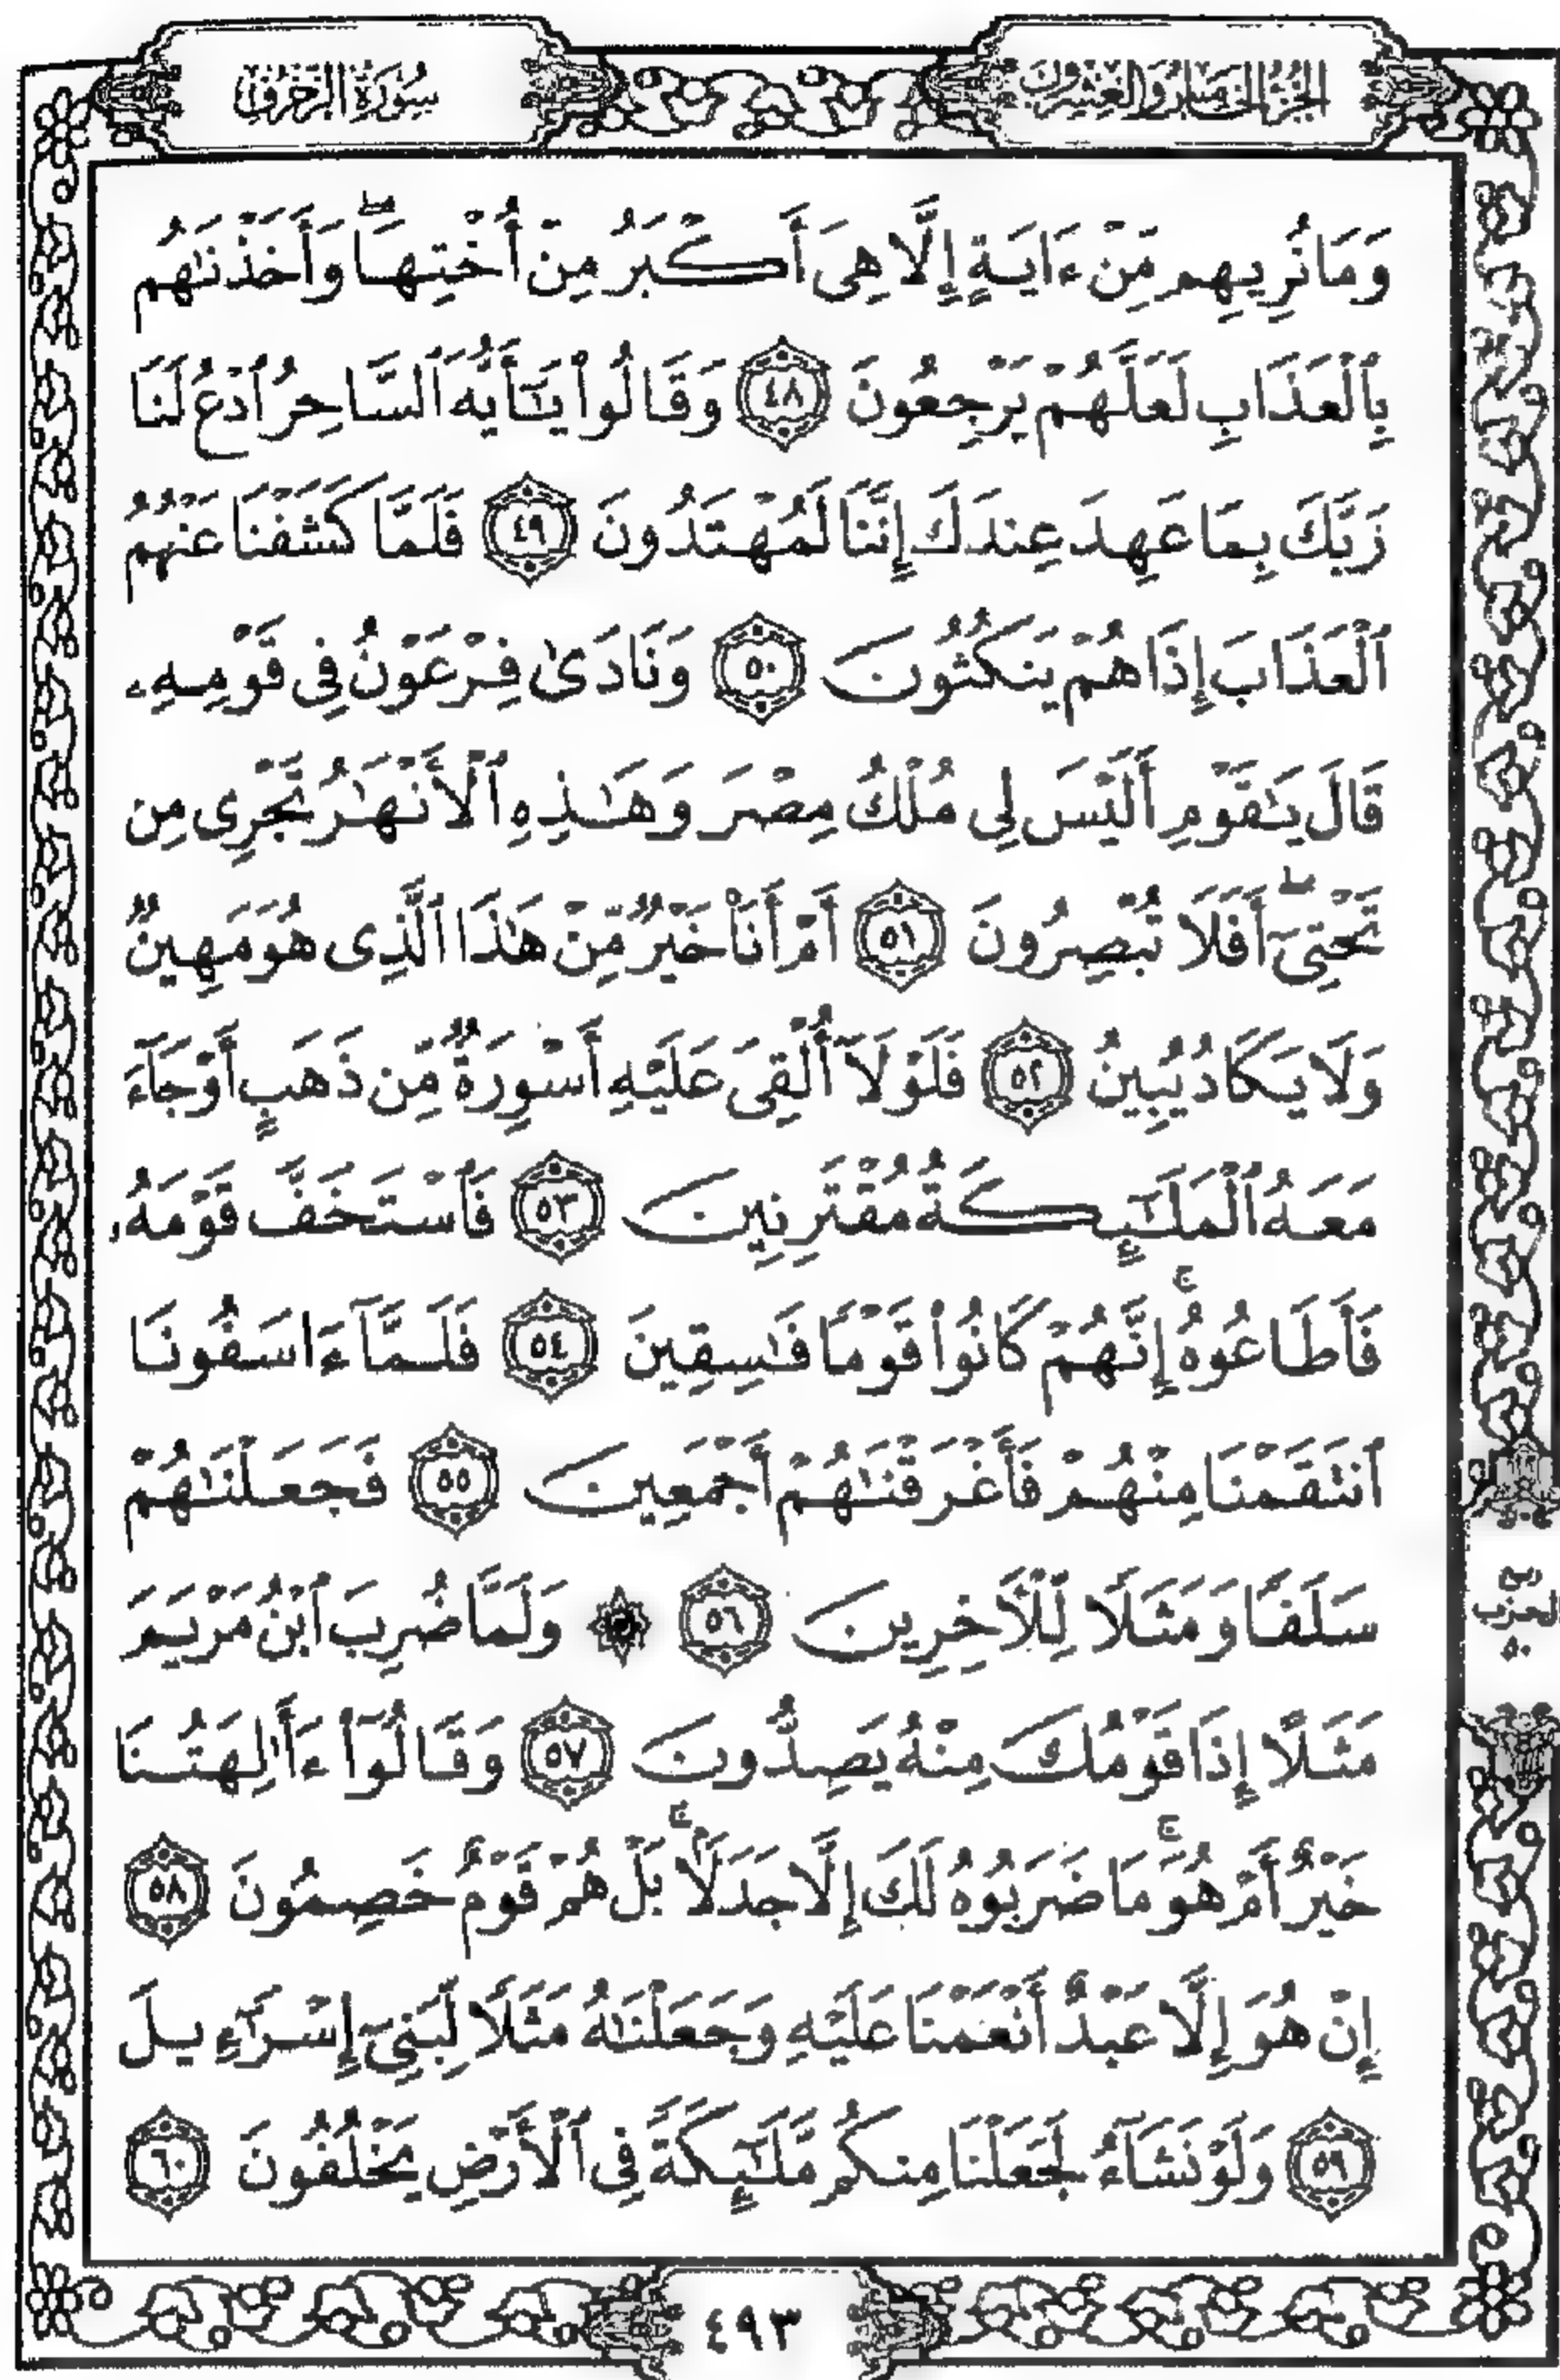 الجزء الخامس والعشرون
سورة الزخرف
وَمَا نُرِيهِم مِّنْ ءَايَةٍ إِلَّا هِىَ أَكْبَرُ مِنْ أُخْتِهَا ۖ وَأَخَذْنَٰهُم
بِٱلْعَذَابِ لَعَلَّهُمْ يَرْجِعُونَ ٤٨ وَقَالُوا۟ يَٰٓأَيُّهَ ٱلسَّاحِرُ ٱدْعُ لَنَا
رَبَّكَ بِمَا عَهِدَ عِندَكَ إِنَّنَا لَمُهْتَدُونَ ٤٩ فَلَمَّا كَشَفْنَا عَنْهُمُ
ٱلْعَذَابَ إِذَا هُمْ يَنكُثُونَ ٥٠ وَنَادَىٰ فِرْعَوْنُ فِى قَوْمِهِۦ
قَالَ يَٰقَوْمِ أَلَيْسَ لِى مُلْكُ مِصْرَ وَهَٰذِهِ ٱلْأَنْهَٰرُ تَجْرِى مِن
تَحْتِىٓ ۖ أَفَلَا تُبْصِرُونَ ٥١ أَمْ أَنَا۠ خَيْرٌ مِّنْ هَٰذَا ٱلَّذِى هُوَ مَهِينٌ
وَلَا يَكَادُ يُبِينُ ٥٢ فَلَوْلَآ أُلْقِىَ عَلَيْهِ أَسْوِرَةٌ مِّن ذَهَبٍ أَوْ جَآءَ
مَعَهُ ٱلْمَلَٰٓئِكَةُ مُقْتَرِنِينَ ٥٣ فَٱسْتَخَفَّ قَوْمَهُۥ
فَأَطَاعُوهُ ۚ إِنَّهُمْ كَانُوا۟ قَوْمًا فَٰسِقِينَ ٥٤ فَلَمَّآ ءَاسَفُونَا
ٱنتَقَمْنَا مِنْهُمْ فَأَغْرَقْنَٰهُمْ أَجْمَعِينَ ٥٥ فَجَعَلْنَٰهُمْ
سَلَفًا وَمَثَلًا لِّلْأَخِرِينَ ٥٦ ۞ وَلَمَّا ضُرِبَ ٱبْنُ مَرْيَمَ
مَثَلًا إِذَا قَوْمُكَ مِنْهُ يَصِدُّونَ ٥٧ وَقَالُوٓا۟ ءَأَٰلِهَتُنَا
خَيْرٌ أَمْ هُوَ ۚ مَا ضَرَبُوهُ لَكَ إِلَّا جَدَلًۢا ۚ بَلْ هُمْ قَوْمٌ خَصِمُونَ ٥٨
إِنْ هُوَ إِلَّا عَبْدٌ أَنْعَمْنَا عَلَيْهِ وَجَعَلْنَٰهُ مَثَلًا لِّبَنِىٓ إِسْرَٰٓءِيلَ
٥٩ وَلَوْ نَشَآءُ لَجَعَلْنَا مِنكُم مَّلَٰٓئِكَةً فِى ٱلْأَرْضِ يَخْلُفُونَ ٦٠
ربع
الحزب
٥٠
٤٩٣